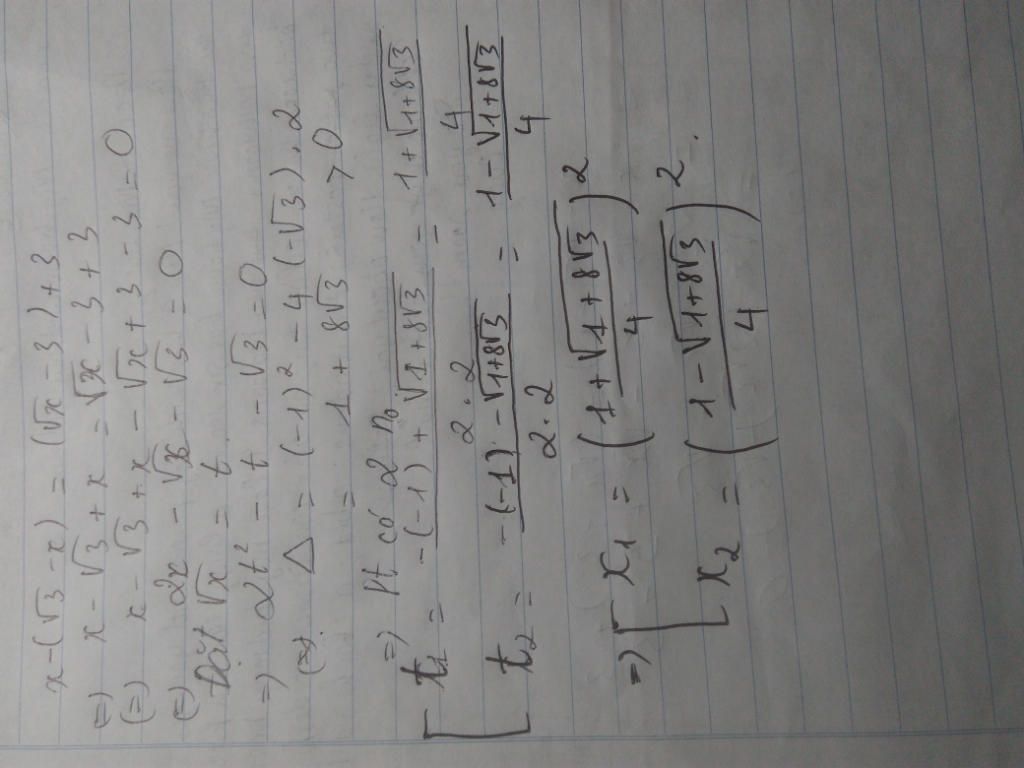 x-(√3-x) = (√x-3)+3
(=) x-√3+x = √x-3+3
(=) x-√3+x-√x+3-3=0
(=) 2x-√x-√3=0
Đặt √x = t
=) 2t²-t-√3=0
(=). Δ = (-1)²-4(-√3).2
= 1+8√3 >0
=) Pt có 2 n₀
[ t₁ = (-(-1)+√(1+8√3))/(2.2) = (1+√(1+8√3))/4
t₂ = (-(-1)-√(1+8√3))/(2.2) = (1-√(1+8√3))/4
=) [ x₁ = ((1+√(1+8√3))/4)²
x₂ = ((1-√(1+8√3))/4)².